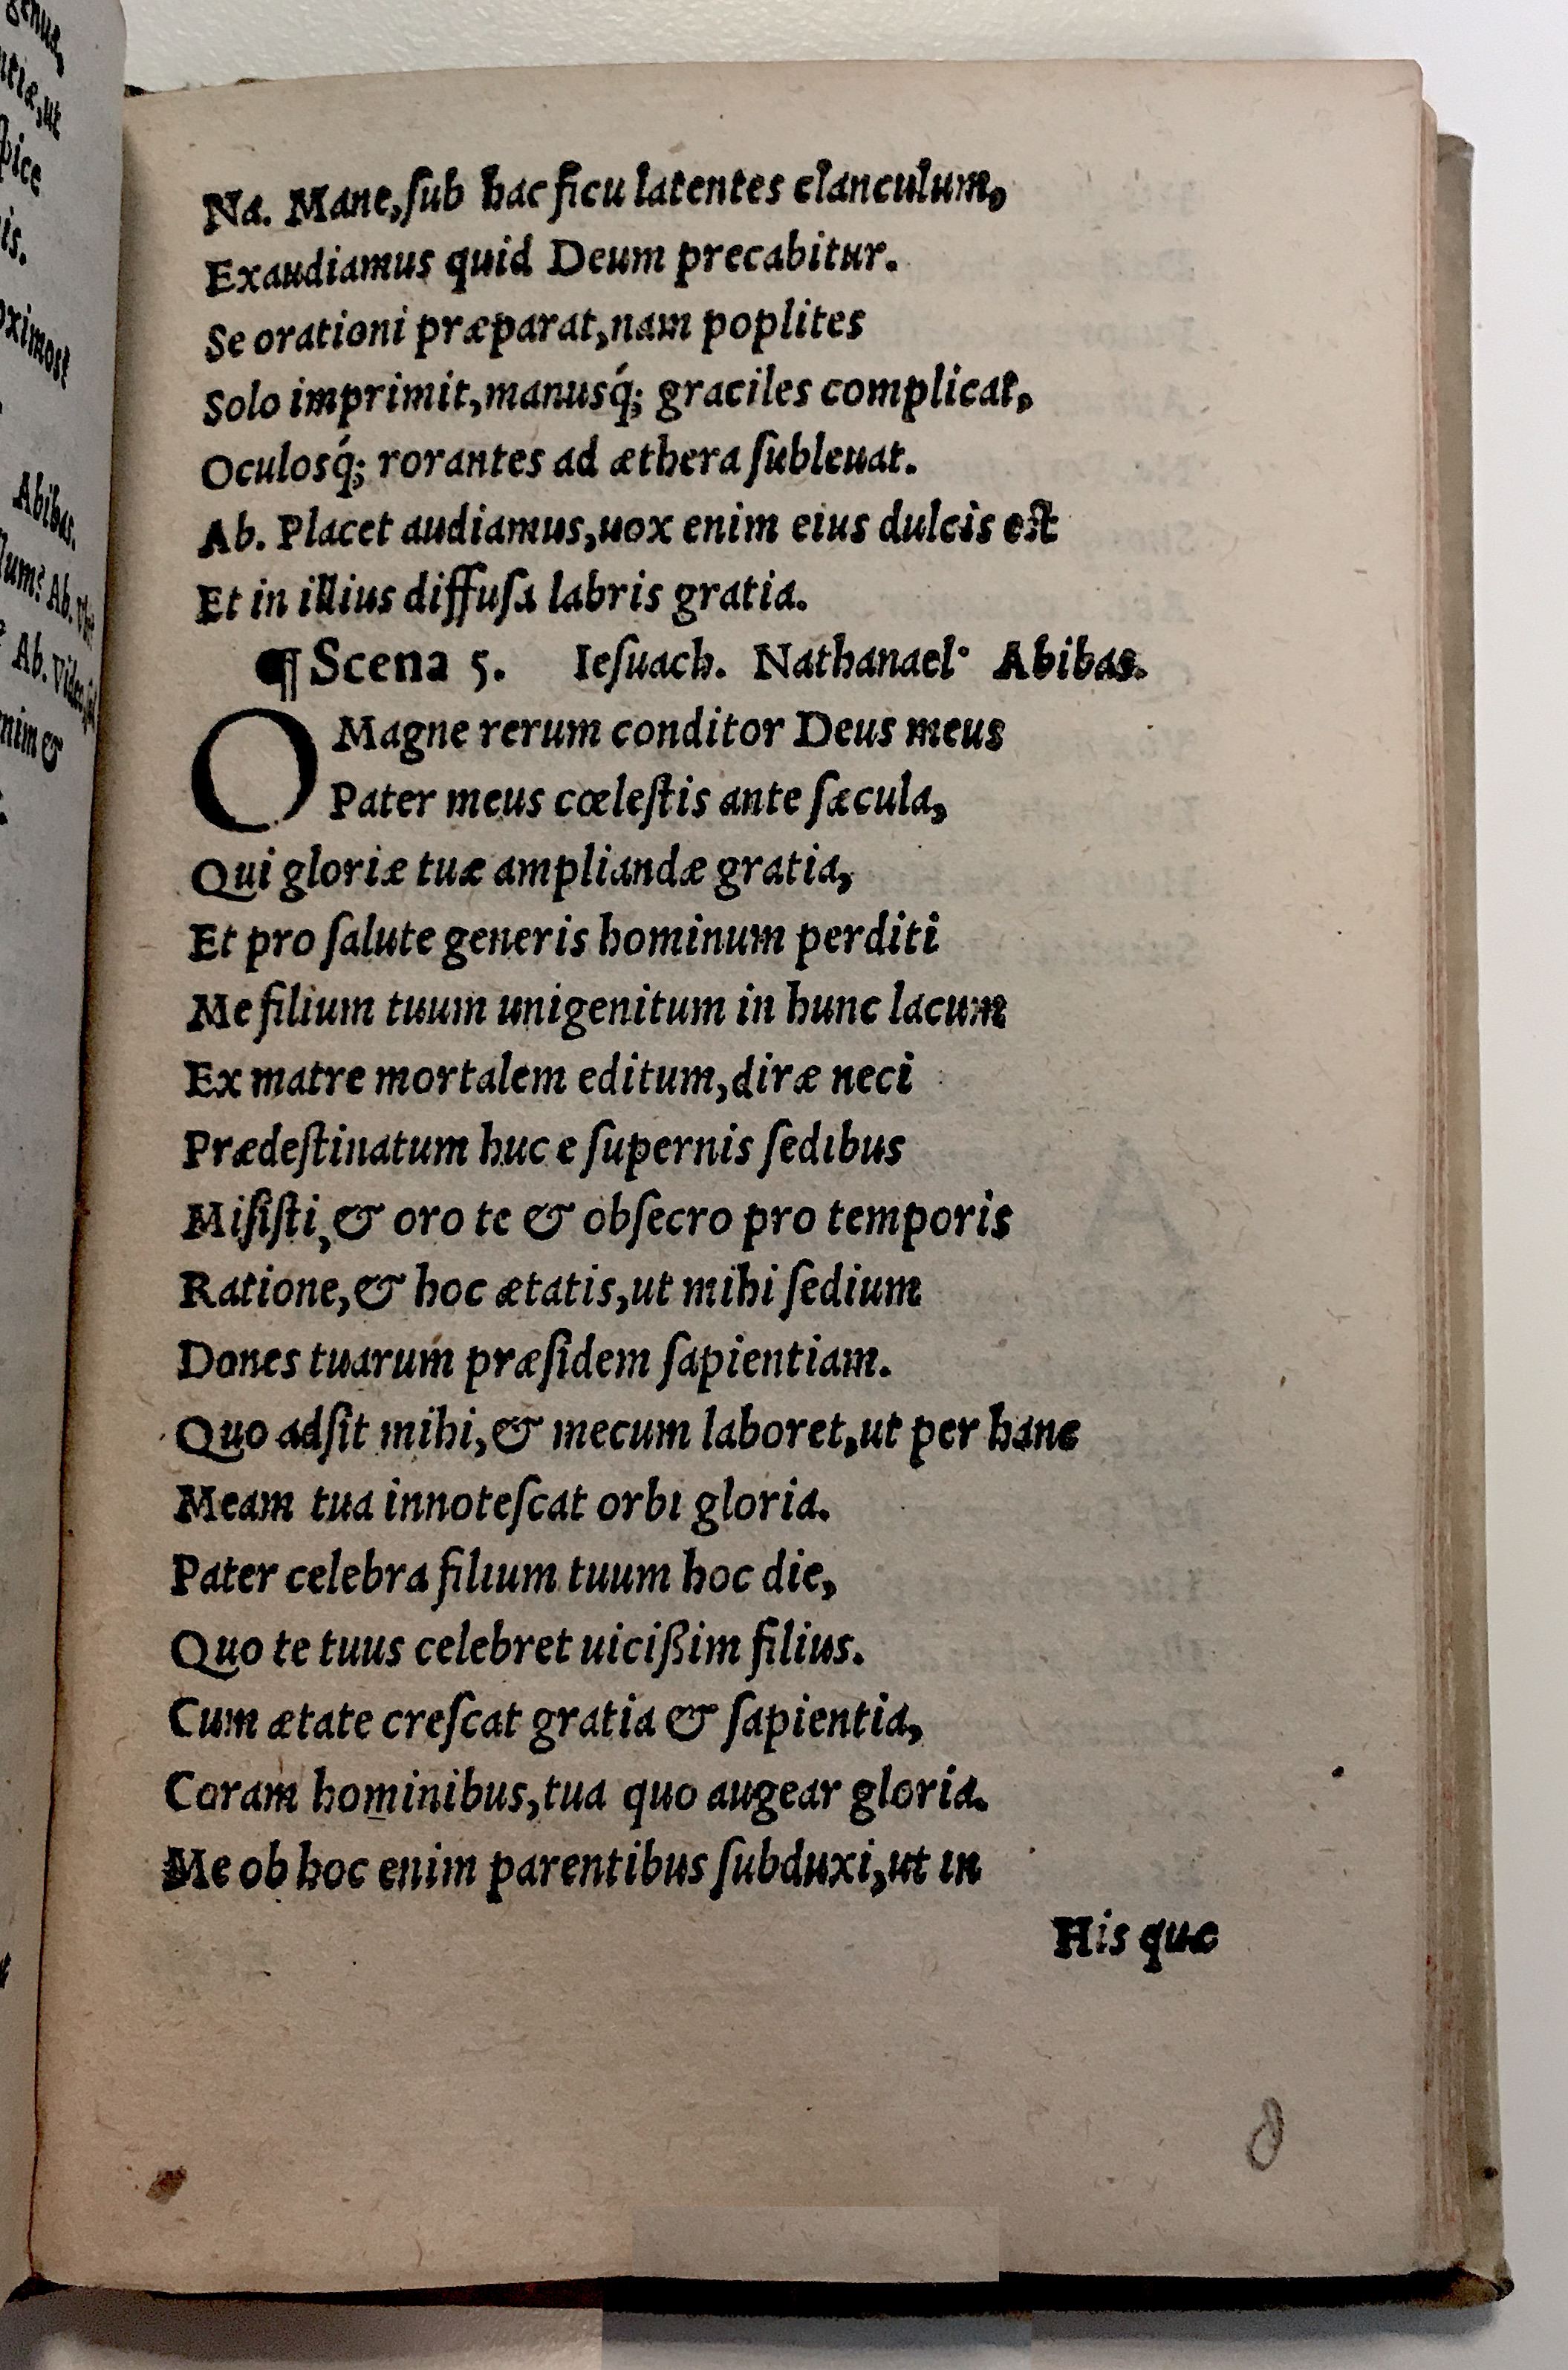 genus,
utiæ,ut
pice
is.
oximost
Abibas.
lum? Ab.
Ab.
nim &
Na. Mane,ſub hac ficu latentes clanculum,
Exaudiamus quid Deum precabitur.
Se orationi præparat,nam poplites
Solo imprimit,manusq́; graciles complicat,
Oculosq́; rorantes ad æthera ſubleuat.
Ab. Placet audiamus,uox enim eius dulcis est
Et in illius diffuſa labris gratia.
¶ Scena 5. Ieſuach. Nathanael· Abibas.
O Magne rerum conditor Deus meus
Pater meus cœleſtis ante ſæcula,
Qui gloriæ tuæ ampliandæ gratia,
Et pro ſalute generis hominum perditi
Me filium tuum unigenitum in hunc lacum
Ex matre mortalem editum,diræ neci
Prædeſtinatum huc e ſupernis ſedibus
Miſiſti,& oro te & obſecro pro temporis
Ratione,& hoc ætatis,ut mihi ſedium
Dones tuarum præſidem ſapientiam.
Quo adſit mihi,& mecum laboret,ut per hanc
Meam tua innoteſcat orbi gloria.
Pater celebra filium tuum hoc die,
Quo te tuus celebret uicißim filius.
Cum ætate creſcat gratia & ſapientia,
Coram hominibus,tua quo augear gloria.
Me ob hoc enim parentibus ſubduxi,ut in
His quæ